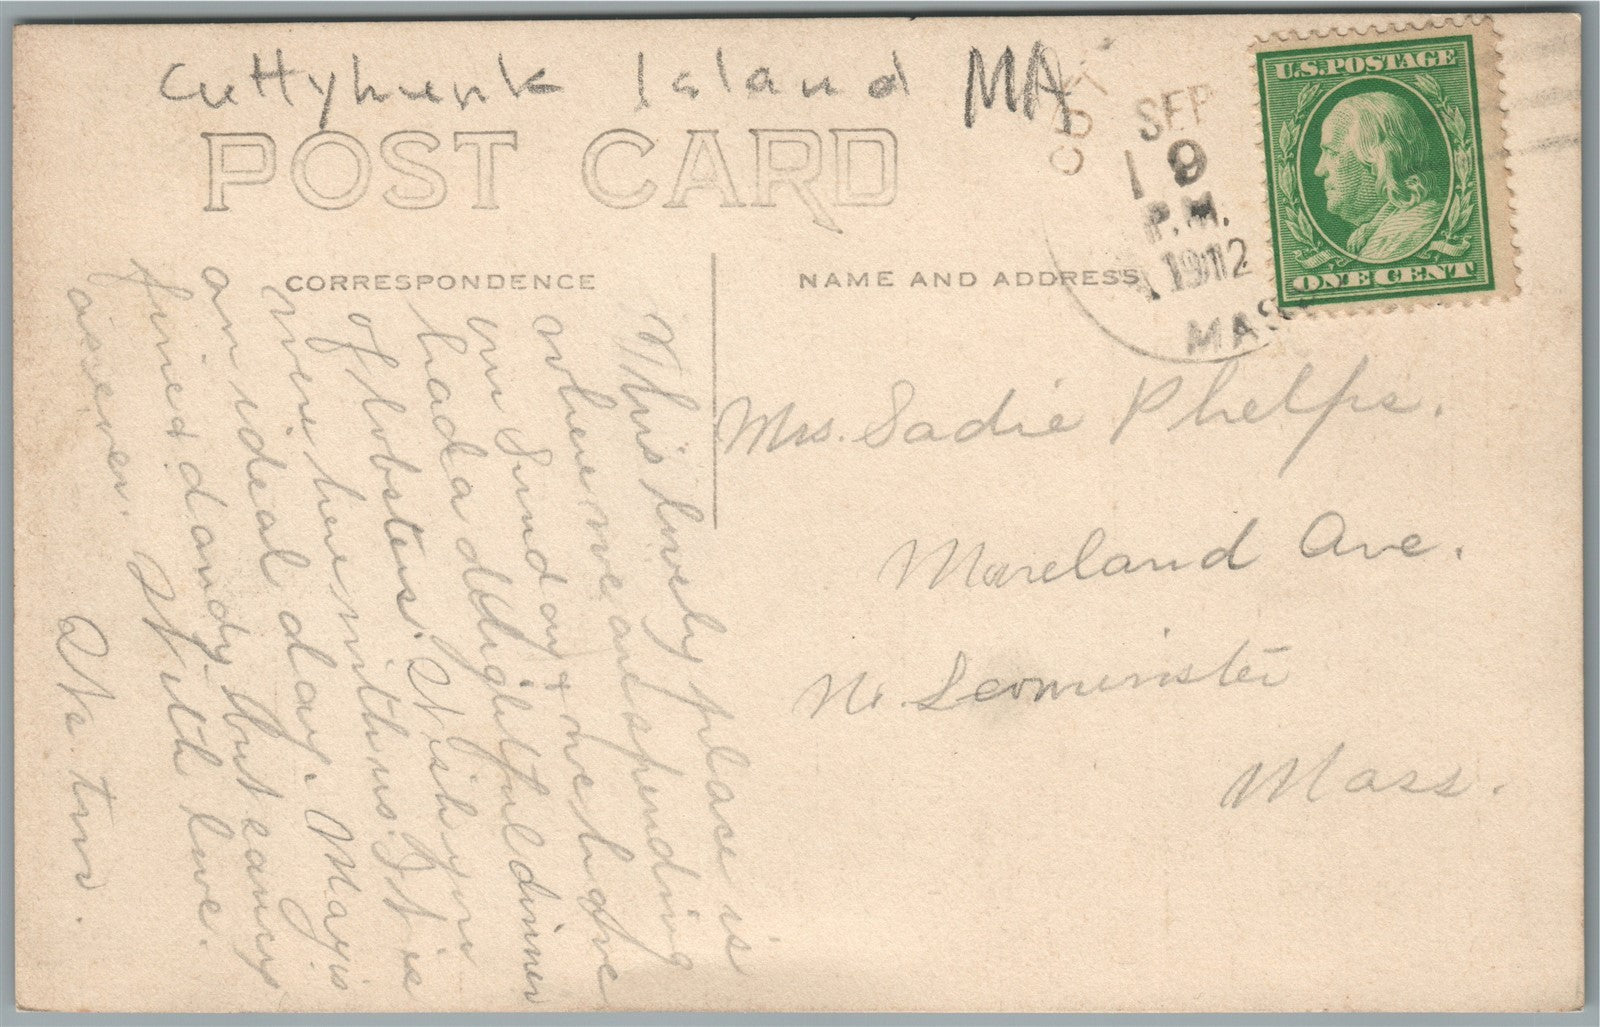 Cuttyhunk Island MA
POST CARD
CORRESPONDENCE
NAME AND ADDRESS
CUTT
SEP
9
P.M.
1912
MASS
U.S. POSTAGE
ONE CENT
Mrs. Sadie Phelps.
Moreland Ave.
No. Leominster
Mass.
This lovely place is
where we are spending
our Sunday & we have
had a delightful dinner
of lobsters. Wish you
were here with us. It is
an ideal day. May is
fine & dandy, but
as ever. With love.